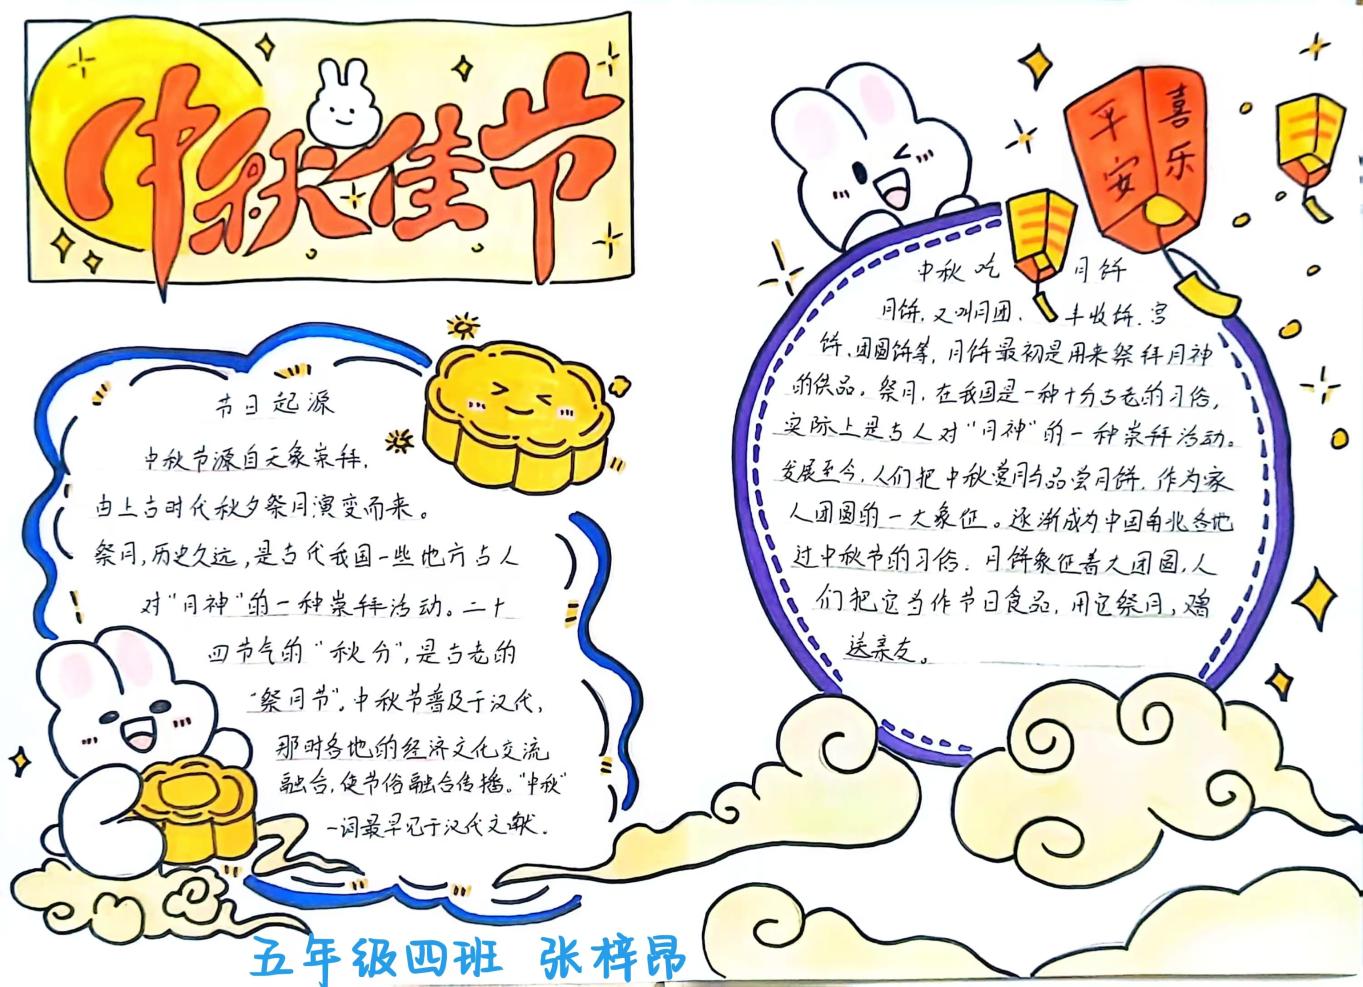 中秋佳节
节日起源
中秋节源自天象崇拜,
由上古时代秋夕祭月演变而来。
祭月,历史久远,是古代我国一些地方古人
对“月神”的一种崇拜活动。二十
四节气的“秋分”,是古老的
“祭月节”。中秋节普及于汉代,
那时各地的经济文化交流
融合,使节俗融合传播。“中秋”
一词最早见于汉代文献.
平安
喜乐
中秋吃月饼
月饼,又叫月团、丰收饼、宫
饼、团圆饼等,月饼最初是用来祭拜月神
的供品。祭月,在我国是一种十分古老的习俗,
实际上是古人对“月神”的一种崇拜活动。
发展至今,人们把中秋赏月与品尝月饼,作为家
人团圆的一大象征。逐渐成为中国南北各地
过中秋节的习俗.月饼象征着大团圆,人
们把它当作节日食品,用它祭月,赠
送亲友。
五年级四班 张梓昂